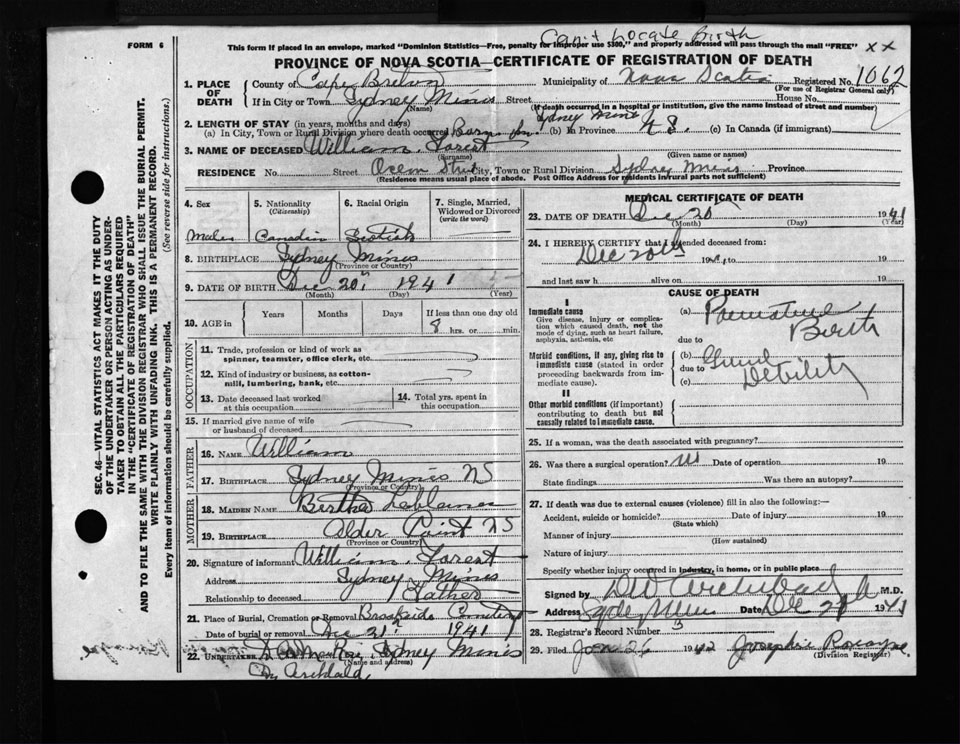 FORM 6
Can't Locate Birth
This form if placed in an envelope, marked "Dominion Statistics—Free, penalty for improper use $300," and properly addressed will pass through the mail "FREE" xx
PROVINCE OF NOVA SCOTIA—CERTIFICATE OF REGISTRATION OF DEATH
1. PLACE OF DEATH County of Cape Breton Municipality of Nova Scotia Registered No. 1062
(For use of Registrar General only)
If in City or Town Sydney Mines Street House No.
(Name) (If death occurred in a hospital or institution, give the name instead of street and number)
2. LENGTH OF STAY (in years, months and days) Sydney Mines
(a) In City, Town or Rural Division where death occurred Born in (b) In Province (c) In Canada (if immigrant)
3. NAME OF DECEASED William Forest
(Surname) (Given name or names)
RESIDENCE No. Street Street City, Town or Rural Division Sydney Mines Province
(Residence means usual place of abode. Post Office Address for residents in rural parts not sufficient)
4. Sex 5. Nationality (Citizenship) 6. Racial Origin 7. Single, Married, Widowed or Divorced (write the word)
Male Canadian Scotish
8. BIRTHPLACE Sydney Mines
(Province or Country)
9. DATE OF BIRTH Dec 20th 1941
(Month) (Day) (Year)
10. AGE in Years Months Days If less than one day old
8 hrs. or min.
OCCUPATION
11. Trade, profession or kind of work as spinner, teamster, office clerk, etc.
12. Kind of industry or business, as cotton-mill, lumbering, bank, etc.
13. Date deceased last worked at this occupation 14. Total yrs. spent in this occupation
15. If married give name of wife or husband of deceased
FATHER
16. NAME William
17. BIRTHPLACE Sydney Mines NS
(Province or Country)
MOTHER
18. MAIDEN NAME Bertha
19. BIRTHPLACE Alder Point NS
(Province or Country)
20. Signature of informant William Forest
Address Sydney Mines
Relationship to deceased Father
21. Place of Burial, Cremation or Removal Brookside Cemetery
Date of burial or removal Dec 21 1941
22. UNDERTAKER Sydney Mines
(Name and address)
MEDICAL CERTIFICATE OF DEATH
23. DATE OF DEATH Dec 20 1941
(Month) (Day) (Year)
24. I HEREBY CERTIFY that I attended deceased from:
Dec 20th 1941 to 19
and last saw h alive on 19
CAUSE OF DEATH
I
Immediate cause
Give disease, injury or complication which caused death, not the mode of dying, such as heart failure, asphyxia, asthenia, etc
(a) Premature Birth
due to
Morbid conditions, if any, giving rise to immediate cause (stated in order proceeding backwards from immediate cause).
(b) Debility
due to
(c)
II
Other morbid conditions (if important) contributing to death but not causally related to immediate cause.
25. If a woman, was the death associated with pregnancy?
26. Was there a surgical operation? Date of operation 19
State findings Was there an autopsy?
27. If death was due to external causes (violence) fill in also the following:—
Accident, suicide or homicide? Date of injury 19
(State which)
Manner of injury
(How sustained)
Nature of injury
Specify whether injury occurred in industry, in home, or in public place
Signed by Archibald M.D.
Address Date Dec 1941
28. Registrar's Record Number
29. Filed Jan 26 1942 Josephine
(Division Registrar)
SEC. 46—VITAL STATISTICS ACT MAKES IT THE DUTY OF THE UNDERTAKER OR PERSON ACTING AS UNDERTAKER TO OBTAIN ALL THE PARTICULARS REQUIRED IN THE "CERTIFICATE OF REGISTRATION OF DEATH" AND TO FILE THE SAME WITH THE DIVISION REGISTRAR WHO SHALL ISSUE THE BURIAL PERMIT.
WRITE PLAINLY WITH UNFADING INK. THIS IS A PERMANENT RECORD.
Every item of information should be carefully supplied. (See reverse side for instructions.)